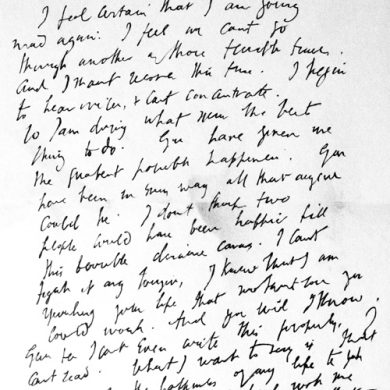 I feel certain that I am going
mad again: I feel we cant go
through another of those terrible times.
And I shant recover this time. I begin
to hear voices, & cant concentrate.
So I am doing what seems the best
thing to do. You have given me
the greatest possible happiness. You
have been in every way all that anyone
could be. I dont think two
people could have been happier till
this terrible disease came. I cant
fight it any longer, I know that I am
spoiling your life, that without me you
could work. And you will I know.
You see I cant even write this properly. I
cant read. What I want to say is that
the happiness of my life to you
me